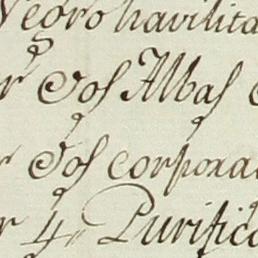 Negro havilita
r Dos Albas
r Dos corpora
r 4r Purific